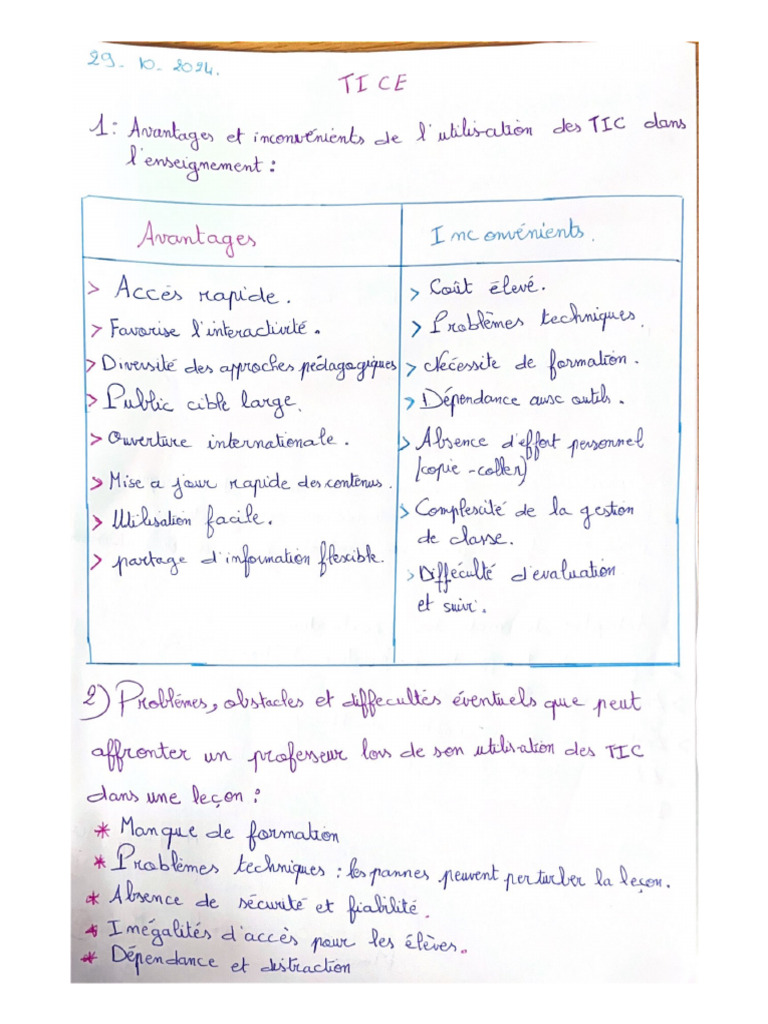 29-10-2024.
TICE
1: Avantages et inconvénients de l'utilisation des TIC dans
l'enseignement :
Avantages
Inconvénients.
> Accès rapide.
> Favorise l'interactivité.
> Diversité des approches pédagogiques
> Public cible large.
> Ouverture internationale.
> Mise a jour rapide des contenus.
> Utilisation facile.
> partage d'information flexible.
> Coût élevé.
> Problèmes techniques.
> Nécessite de formation.
> Dépendance aux outils.
> Absence d'effort personnel
(copie-coller)
> Complexité de la gestion
de classe.
> Difféculté d'evaluation
et suivi.
2) Problémes, obstacles et diffecultés éventuels que peut
affronter un professeur lors de son utilisation des TIC
dans une leçon :
* Manque de formation
* Problèmes techniques : les pannes peuvent perturber la leçon.
* Absence de sécurité et fiabilité.
* Inégalités d'accès pour les élèves.
* Dépendance et distraction